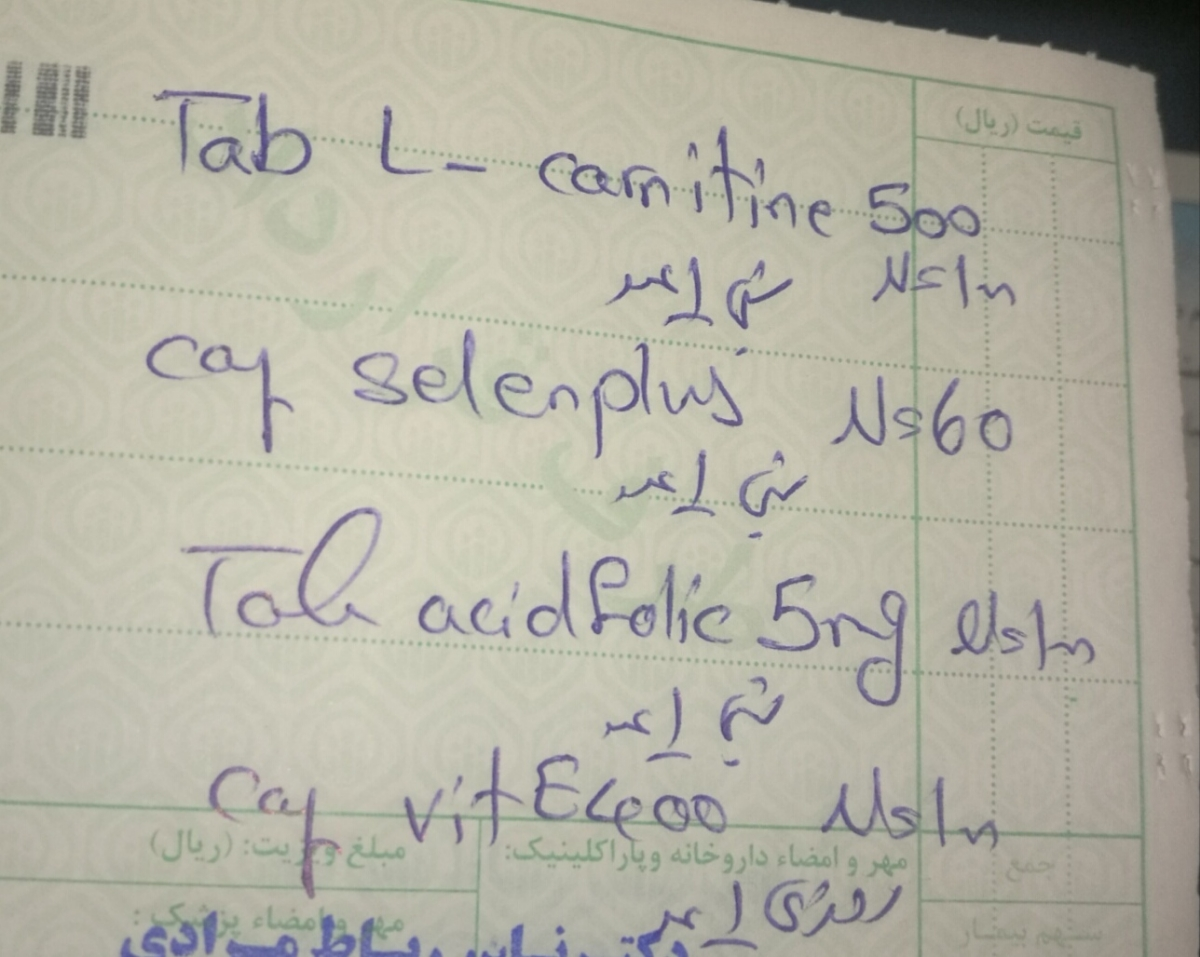 قیمت (ریال)
Tab L- carnitine 500
N=1n
شبی ۱ عدد
cap selenplus N=60
شبی ۱ عدد
Tab acid folic 5mg N=1n
شبی ۱ عدد
cap vit E 400 N=1n
روزی ۱ عدد
جمع
مهر و امضاء داروخانه و پاراکلینیک:
مبلغ ویزیت: (ریال)
سهم بیمار
مهر و امضاء پزشک:
مرادی